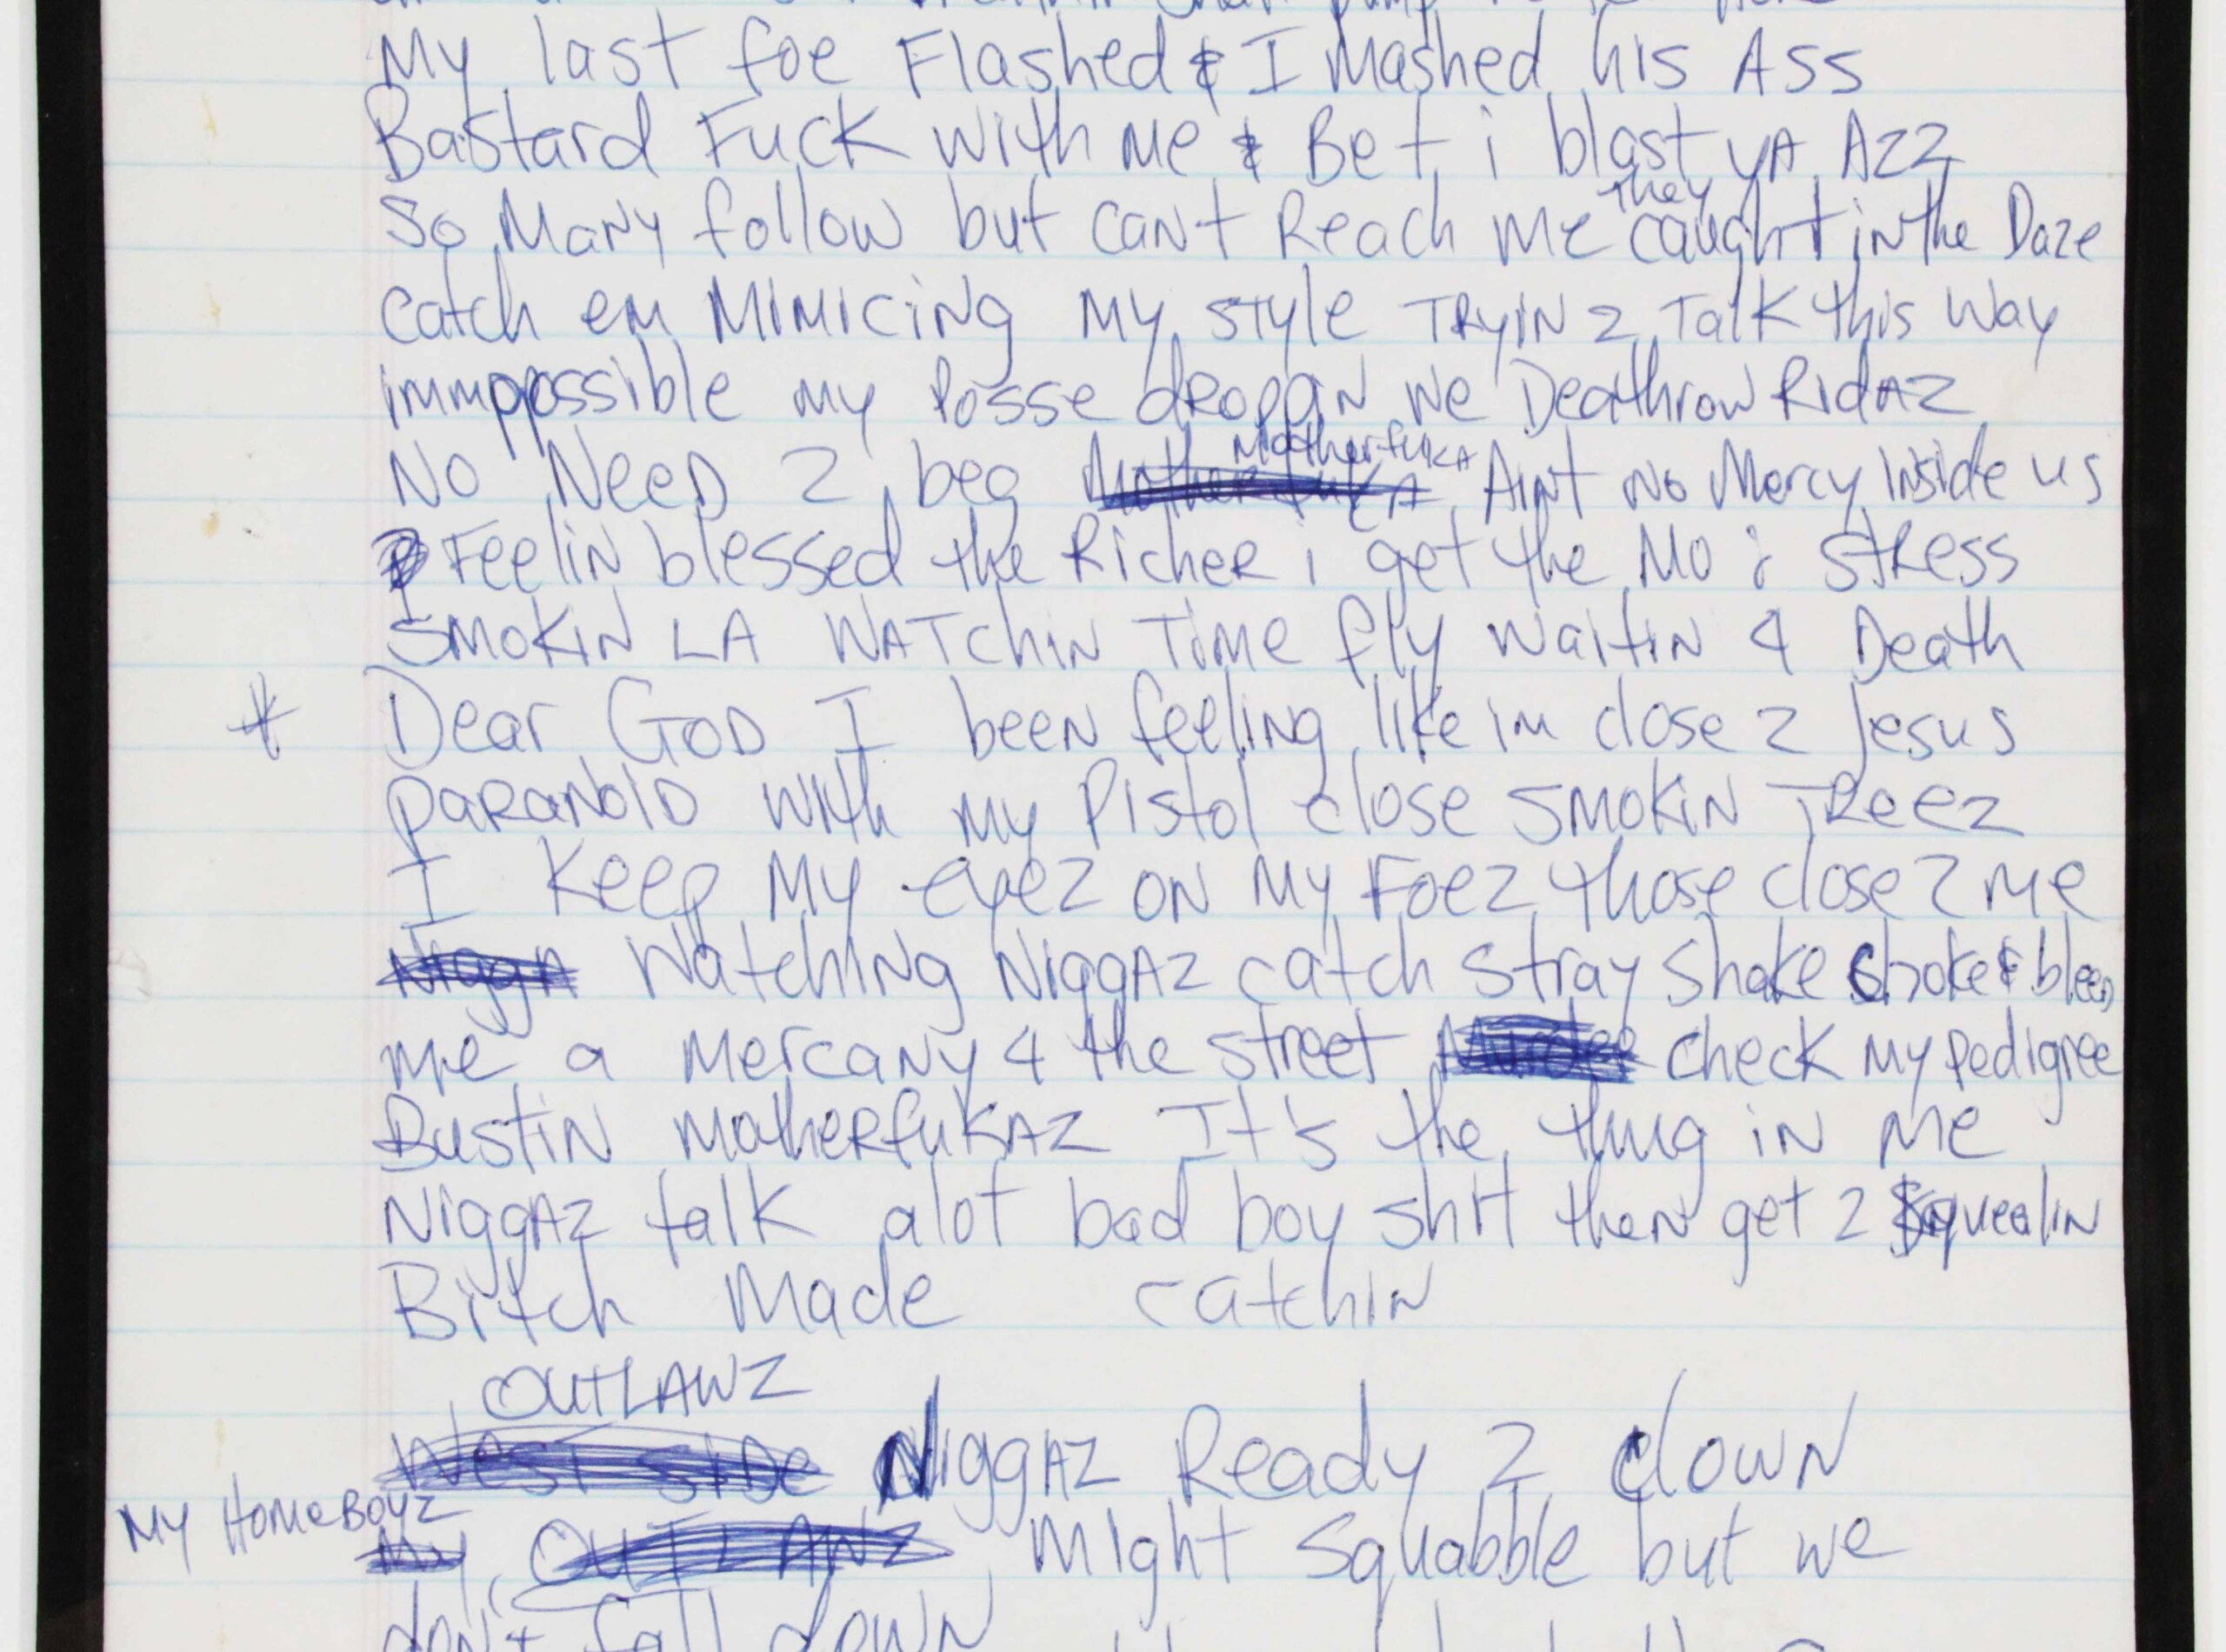 My last foe Flashed & I Mashed his Ass
Bastard Fuck with me & Bet i blast yA Azz
So Many follow but can't Reach me they caught in the Daze
Catch em Mimicing My style Tryin 2 Talk this Way
immpossible my Posse droppin we Deathrow Ridaz
No Need 2 beg MotherfukA MotherfukA Aint No Mercy Inside us
Feelin blessed the Richer i get the Mo i stress
Smokin LA Watchin Time fly Waitin 4 Death
* Dear God I been feeling like im close 2 Jesus
paranoid with my Pistol close smokin Treez
I Keep My eyez on My Foez those close 2 me
Nigga Watching Niggaz catch stray Shake choke & bleed
me a mercany 4 the street Murder check my pedigree
Bustin motherfukaz It's the thug in Me
Niggaz talk alot bad boy shit then get 2 Squealin
Bitch Made catchin
OUTLAWZ
West Side Niggaz Ready 2 clown
My HomeBoyz
My OUTLAWZ Might Squabble but we
don't fall down